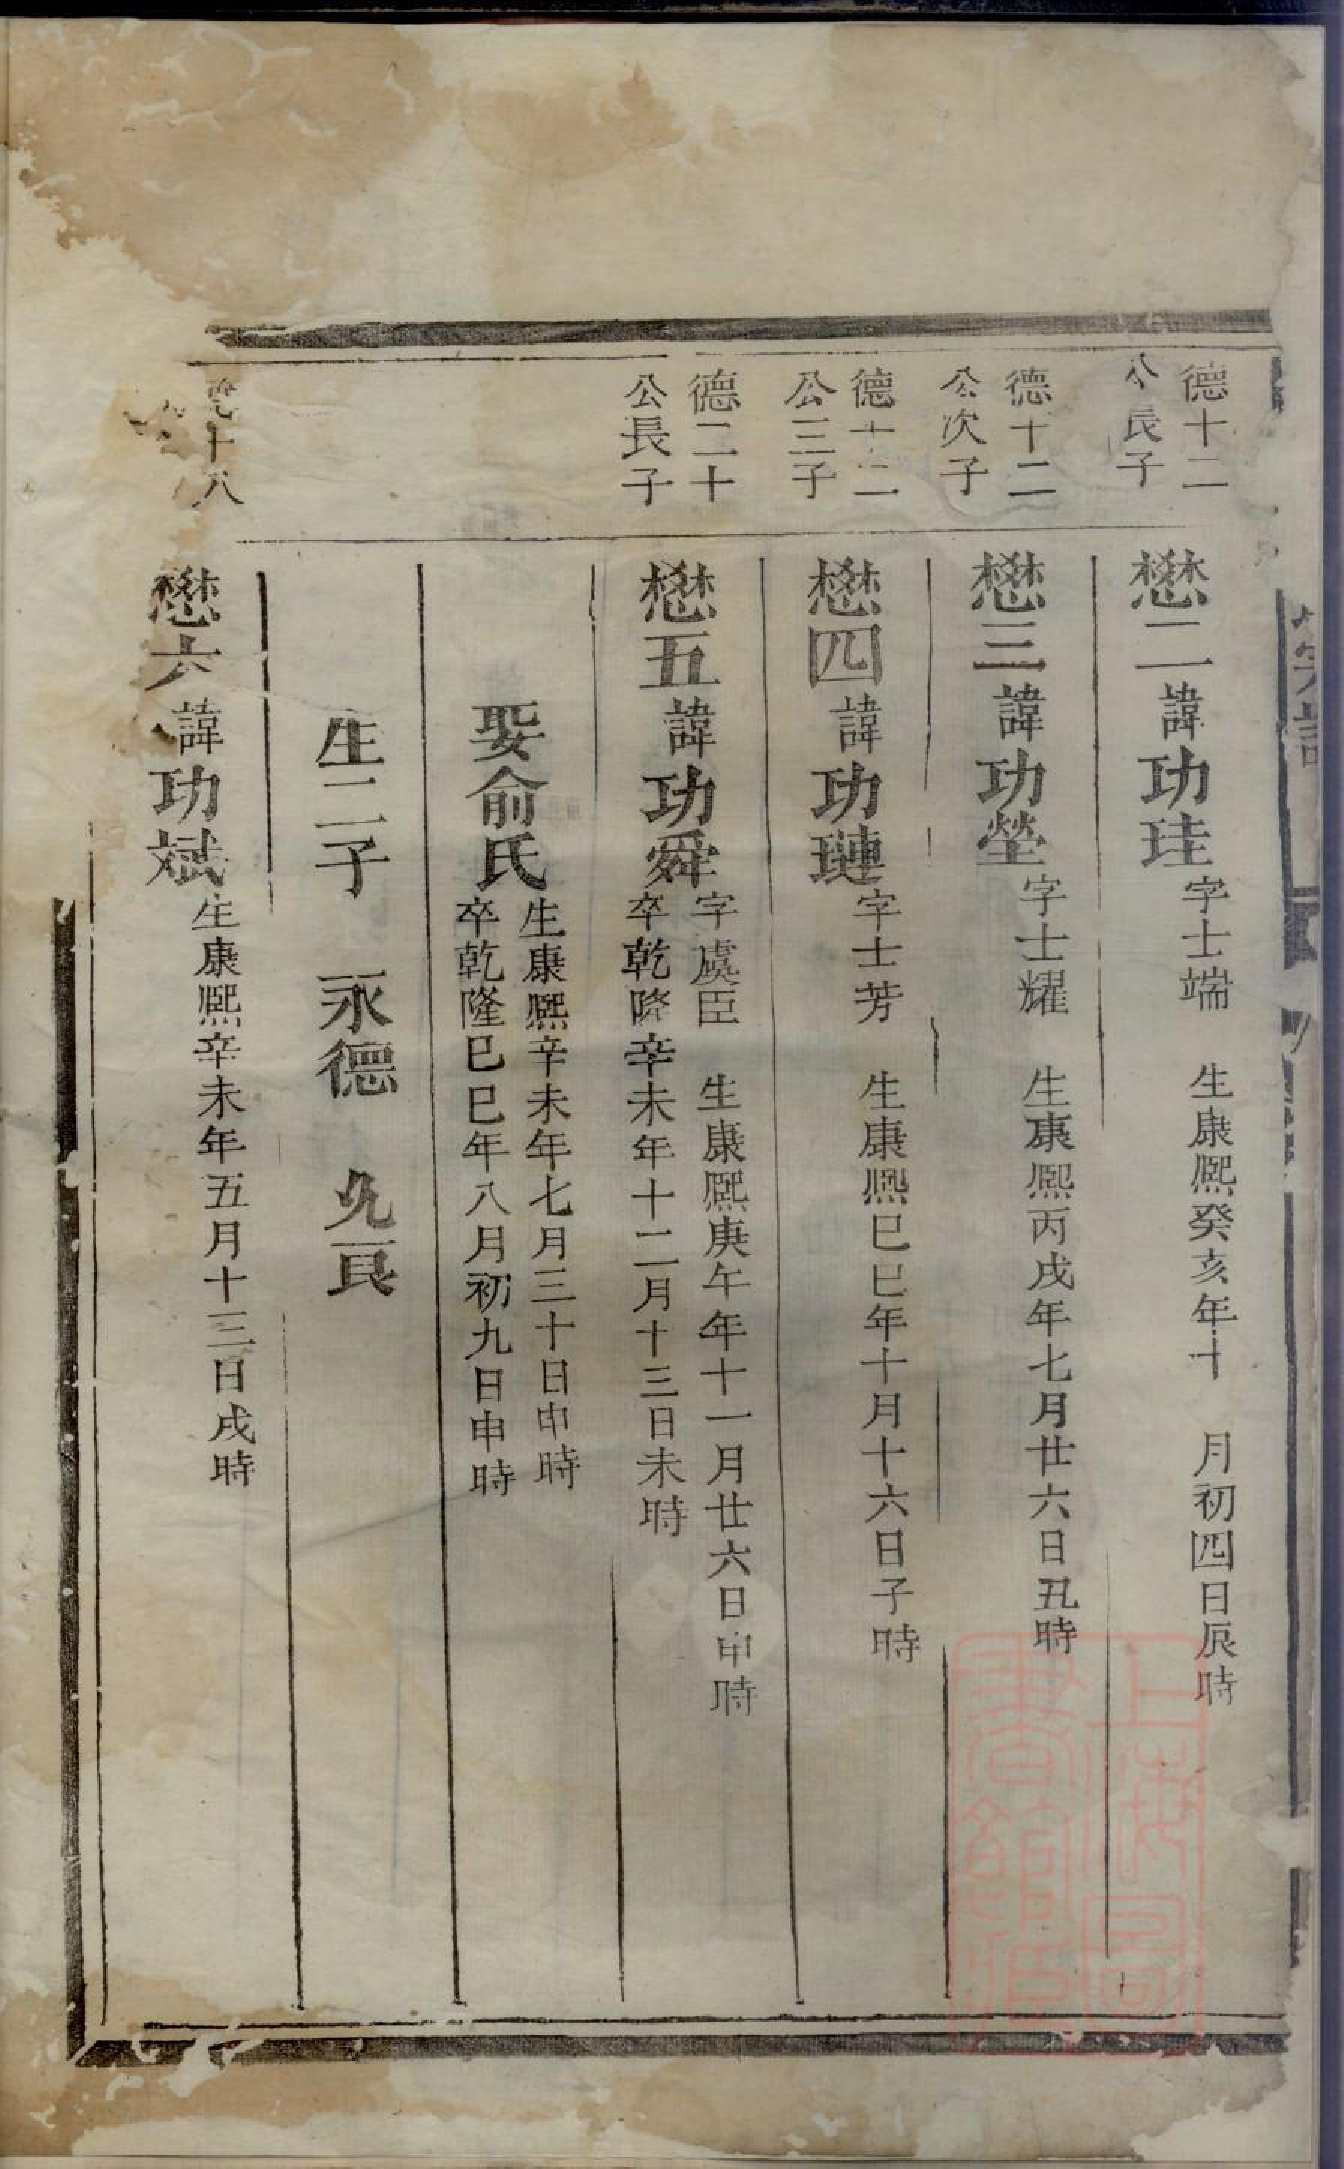 德十二
公長子
懋二諱功珪字士端　生康熈癸亥年十　月初四日辰時
德十二
公次子
懋三諱功瑩字士耀　生康熈丙戌年七月廿六日丑時
德十二
公三子
懋四諱功璉字士芳　生康熈巳巳年十月十六日子時
德二十
公長子
懋五諱功舜
字虞臣　生康熈庚午年十一月廿六日申時
卒乾隆辛未年十二月十三日未時
娶俞氏
生康熈辛未年七月三十日申時
卒乾隆巳巳年八月初九日申時
生二子　永德　允良
十八
懋六諱功斌生康熈辛未年五月十三日戌時
上海圖
書館藏